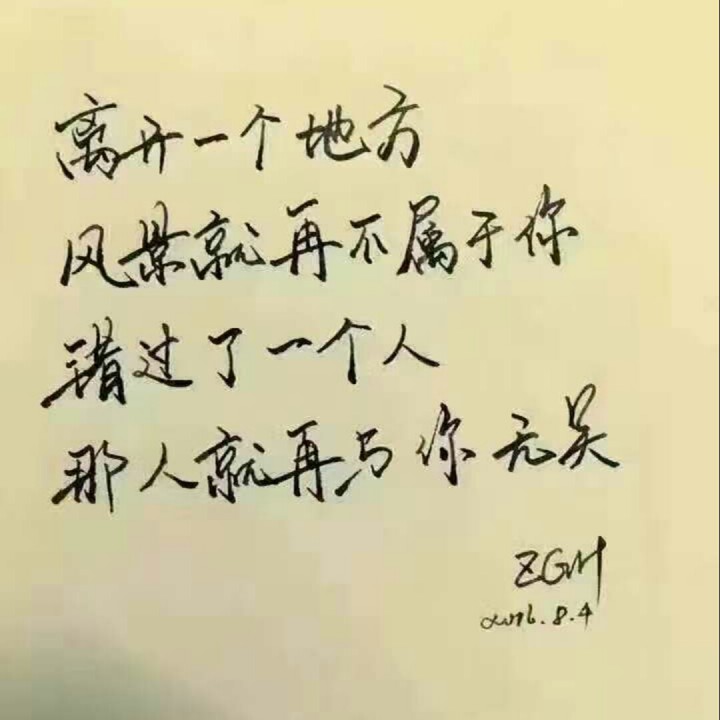 离开一个地方
风景就再不属于你
错过了一个人
那人就再与你无关
ZGM
2016.8.4